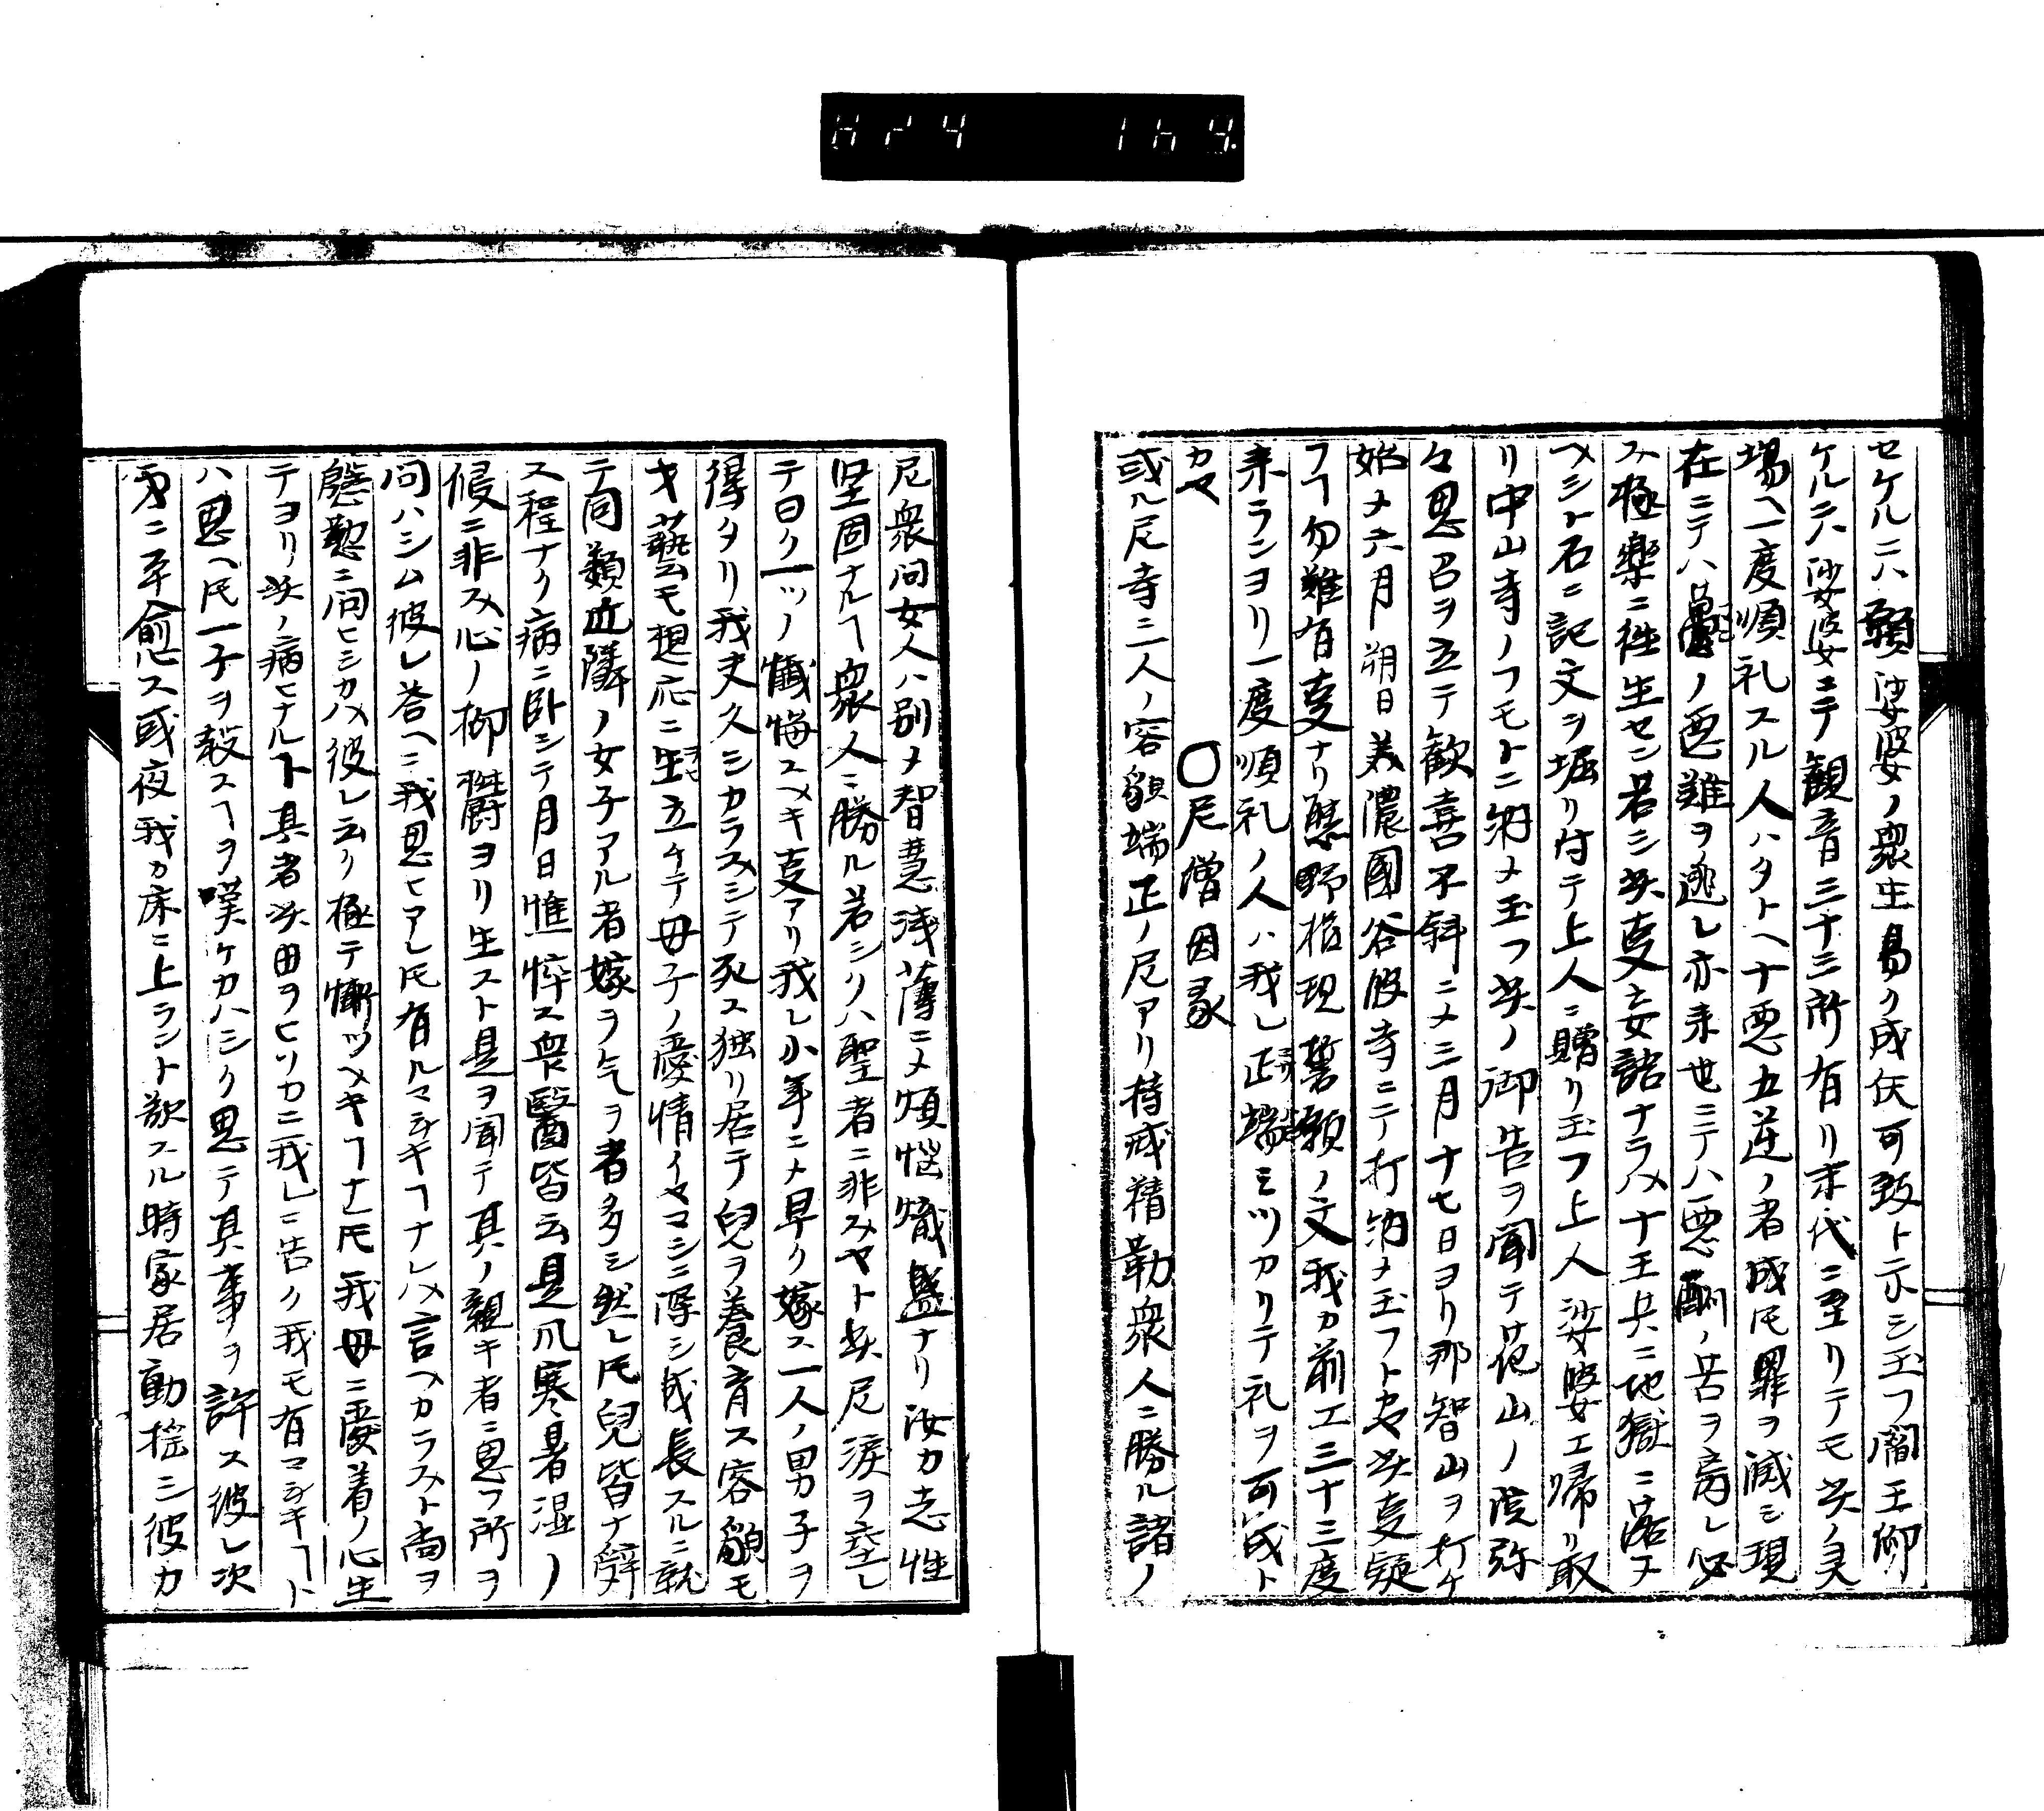 セケルニハ願娑婆ノ衆生易ク成仏可致ト示シ玉フ閻王仰
ケルニハ娑婆ニテ観音三十三所有リ末代ニ至リテモ此ノ灵
場ヘ一度順礼スル人ハタトヘ十悪五逆ノ者成圧罪ヲ滅シ現
在ニテハノ悪難ヲ逃レ亦来世ニテハ悪酬ノ苦ヲ离レ必
ス極楽ニ徃生セン若シ此叓妄語ナラハ十王共ニ地獄ニ落ヌ
ヘシト石ニ記文ヲ堀リ付テ上人ニ贈リ玉フ上人娑婆エ帰リ取
リ中山寺ノフモトニ納メ玉フ此ノ御告ヲ聞テ花山ノ院弥
々思召ヲ立テ歓喜不斜ニメ三月十七日ヨリ那智山ヲ打ケ
始メ六月朔日美濃國谷汲寺ニテ打納メ玉フトカヤ此叓疑
フヿ勿難有叓ナリ熊野権現誓願ノ文我カ前エ三十三度
来ランヨリ一度順礼ノ人ハ我レ道端ミツカクテ礼ヲ可成ト
カヤ
〇尼僧因縁
或ル尼寺ニ一人ノ容貌端正ノ尼アリ持戒精勤衆人ニ勝ル諸ノ
尼衆問女人ハ別メ智慧浅薄ニメ煩悩熾盛ナリ汝カ志性
堅固ナルヿ衆人ニ勝ル若シクハ聖者ニ非スヤト此尼涙ヲ垂レ
テ曰ク一ツノ懺悔スヘキ叓アリ我レ小年ニメ早ク嫁ス一人ノ男子ヲ
得タリ我夫久シカラスシテ死ス独リ居テ兒ヲ養育ス容貌モ
才藝モ想応ニ生立ケテ母子ノ愛情イヤマシニ厚シ成長スルニ就
テ同類近隣ノ女子アル者嫁ヲ乞ヲ者多シ然レ圧兒皆ナ辞
ス程ナク病ニ臥シテ月日惟悴ス衆醫皆云是凨寒暑湿ノ
侵ニ非ス心ノ欝ヨリ生スト是ヲ聞テ其ノ親キ者ニ思フ所ヲ
問ハシム彼レ答ヘニ我思ヒアレ圧有ルマシキヿナレハ言ヘカラスト尚ヲ
慇懃ニ問ヒシカハ彼レ云ク極テ慚ツヘキヿナレ圧我母ニ愛着ノ心生
テヨリ此ノ病ヒナルト其者此由ヲヒソカニ我レニ告ク我モ有マシキヿト
ハ思ヘ圧一子ヲ殺スヿヲ嘆ケカハシク思テ其事ヲ許ス彼レ次
第ニ平愈ス或夜我カ床ニ上ラント欲スル時家居動揺シ彼カ